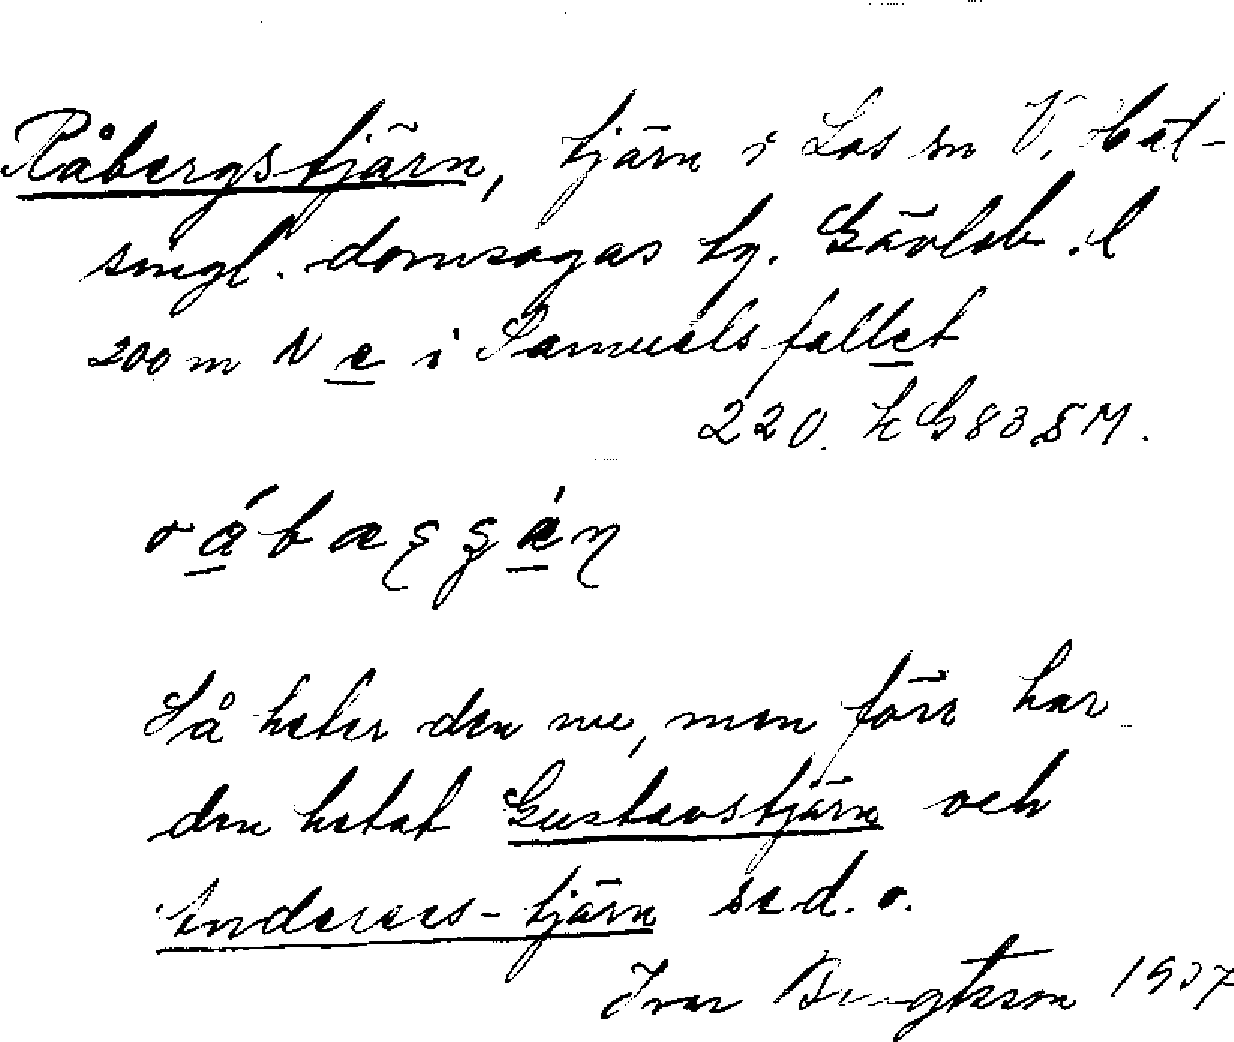 Råbergstjärn, tjärn i Los sn V. Häl-
singl. domsagas tg. Gävleb. l
200 m N e i Samuelsfallet
220.
Så heter den nu, men förr har
den hetat Gustavstjärn och
Andereas-tjärn se d. o.
Ivar Bengtsson 1937